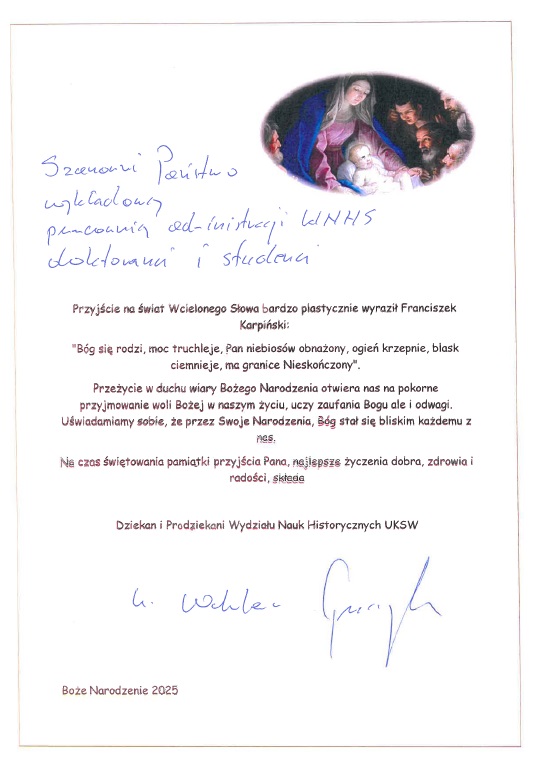 Szanowni Państwo
wykładowcy
pracownicy administracji WNHS
doktoranci i studenci
Przyjście na świat Wcielonego Słowa bardzo plastycznie wyraził Franciszek
Karpiński:
"Bóg się rodzi, moc truchleje, Pan niebiosów obnażony, ogień krzepnie, blask
ciemnieje, ma granice Nieskończony".
Przeżycie w duchu wiary Bożego Narodzenia otwiera nas na pokorne
przyjmowanie woli Bożej w naszym życiu, uczy zaufania Bogu ale i odwagi.
Uświadamiamy sobie, że przez Swoje Narodzenia, Bóg stał się bliskim każdemu z
nas.
Na czas świętowania pamiątki przyjścia Pana, najlepsze życzenia dobra, zdrowia i
radości, składa
Dziekan i Prodziekani Wydziału Nauk Historycznych UKSW
Boże Narodzenie 2025